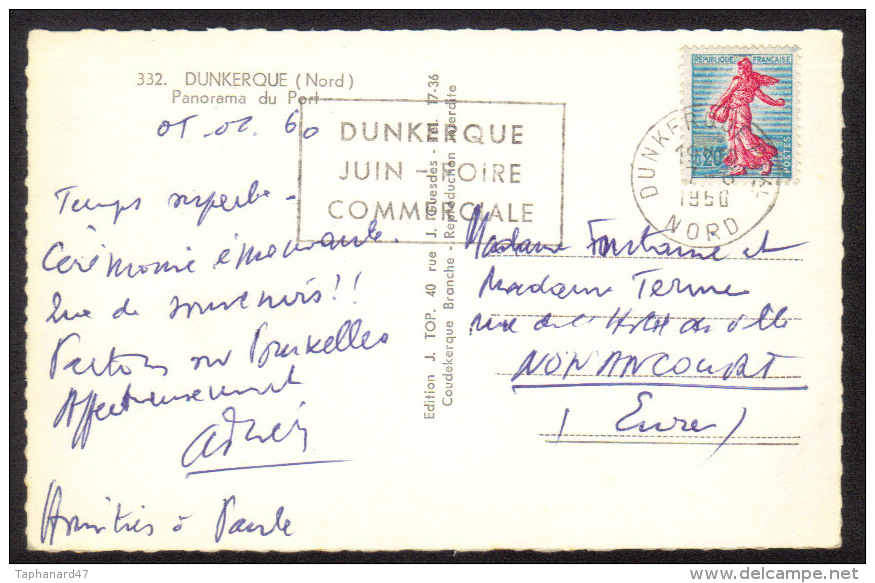 332. DUNKERQUE (Nord)
Panorama du Port
60
DUNKERQUE
JUIN - FOIRE
COMMERCIALE
Temps superbe -
Cérémonie émouvante.
Que de souvenirs !!
Partons sur Bruxelles
Affectueusement
Amitiés à Paule
Edition J. TOP. 40 rue J. Guesdes - Tél. 17-36
Coudekerque Branche - Reproduction interdite
REPUBLIQUE FRANÇAISE
0,20
POSTES
DUNKERQUE
1960
NORD
Madame Fontaine et
Madame Terme
rue de l'Hôtel de Ville
NONANCOURT
(Eure)
Taphanard47
delcampe.net